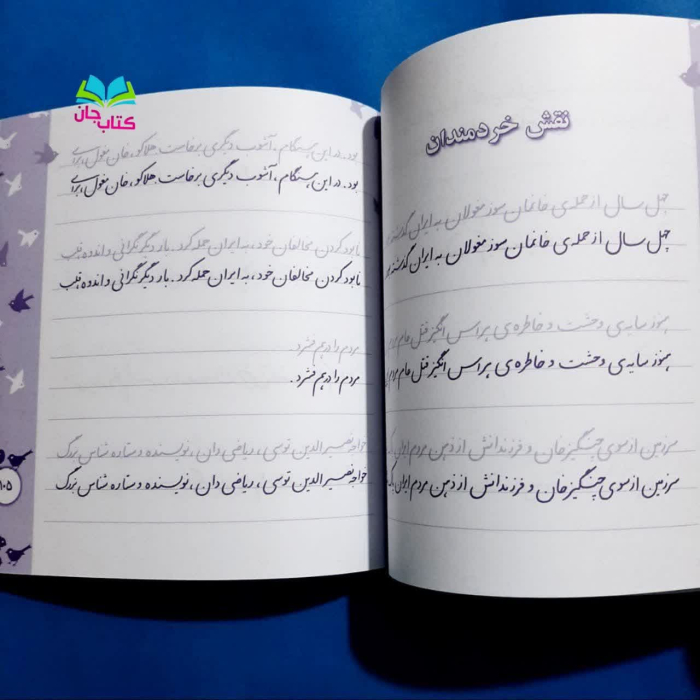 کتاب جان
نقش خردمندان
چهل سال از حمله‌ی خانمان سوز مغولان به ایران گذشته
چهل سال از حمله‌ی خانمان سوز مغولان به ایران گذشته
هنوز سایه‌ی وحشت و خاطره‌ی هراس انگیز قتل عام مردم
هنوز سایه‌ی وحشت و خاطره‌ی هراس انگیز قتل عام مردم
سرزمین از سوی چنگیزخان و فرزندانش از ذهن مردم ایران
سرزمین از سوی چنگیزخان و فرزندانش از ذهن مردم ایران
بود. در این هنگام، آشوب دیگری برخاست. هلاکو، خان مغول، برای
بود. در این هنگام، آشوب دیگری برخاست. هلاکو، خان مغول، برای
نابود کردن مخالفان خود، به ایران حمله کرد. بار دیگر نگرانی و اندوه قلب
نابود کردن مخالفان خود، به ایران حمله کرد. بار دیگر نگرانی و اندوه قلب
مردم را درهم فشرد.
مردم را درهم فشرد.
خواجه نصیرالدین توسی، ریاضی دان، نویسنده و ستاره شناس بزرگ
خواجه نصیرالدین توسی، ریاضی دان، نویسنده و ستاره شناس بزرگ
۱۰۵